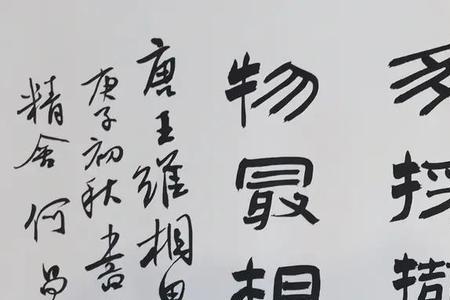 多採擷
物最相
唐王維相思
庚子初秋書
精舍何